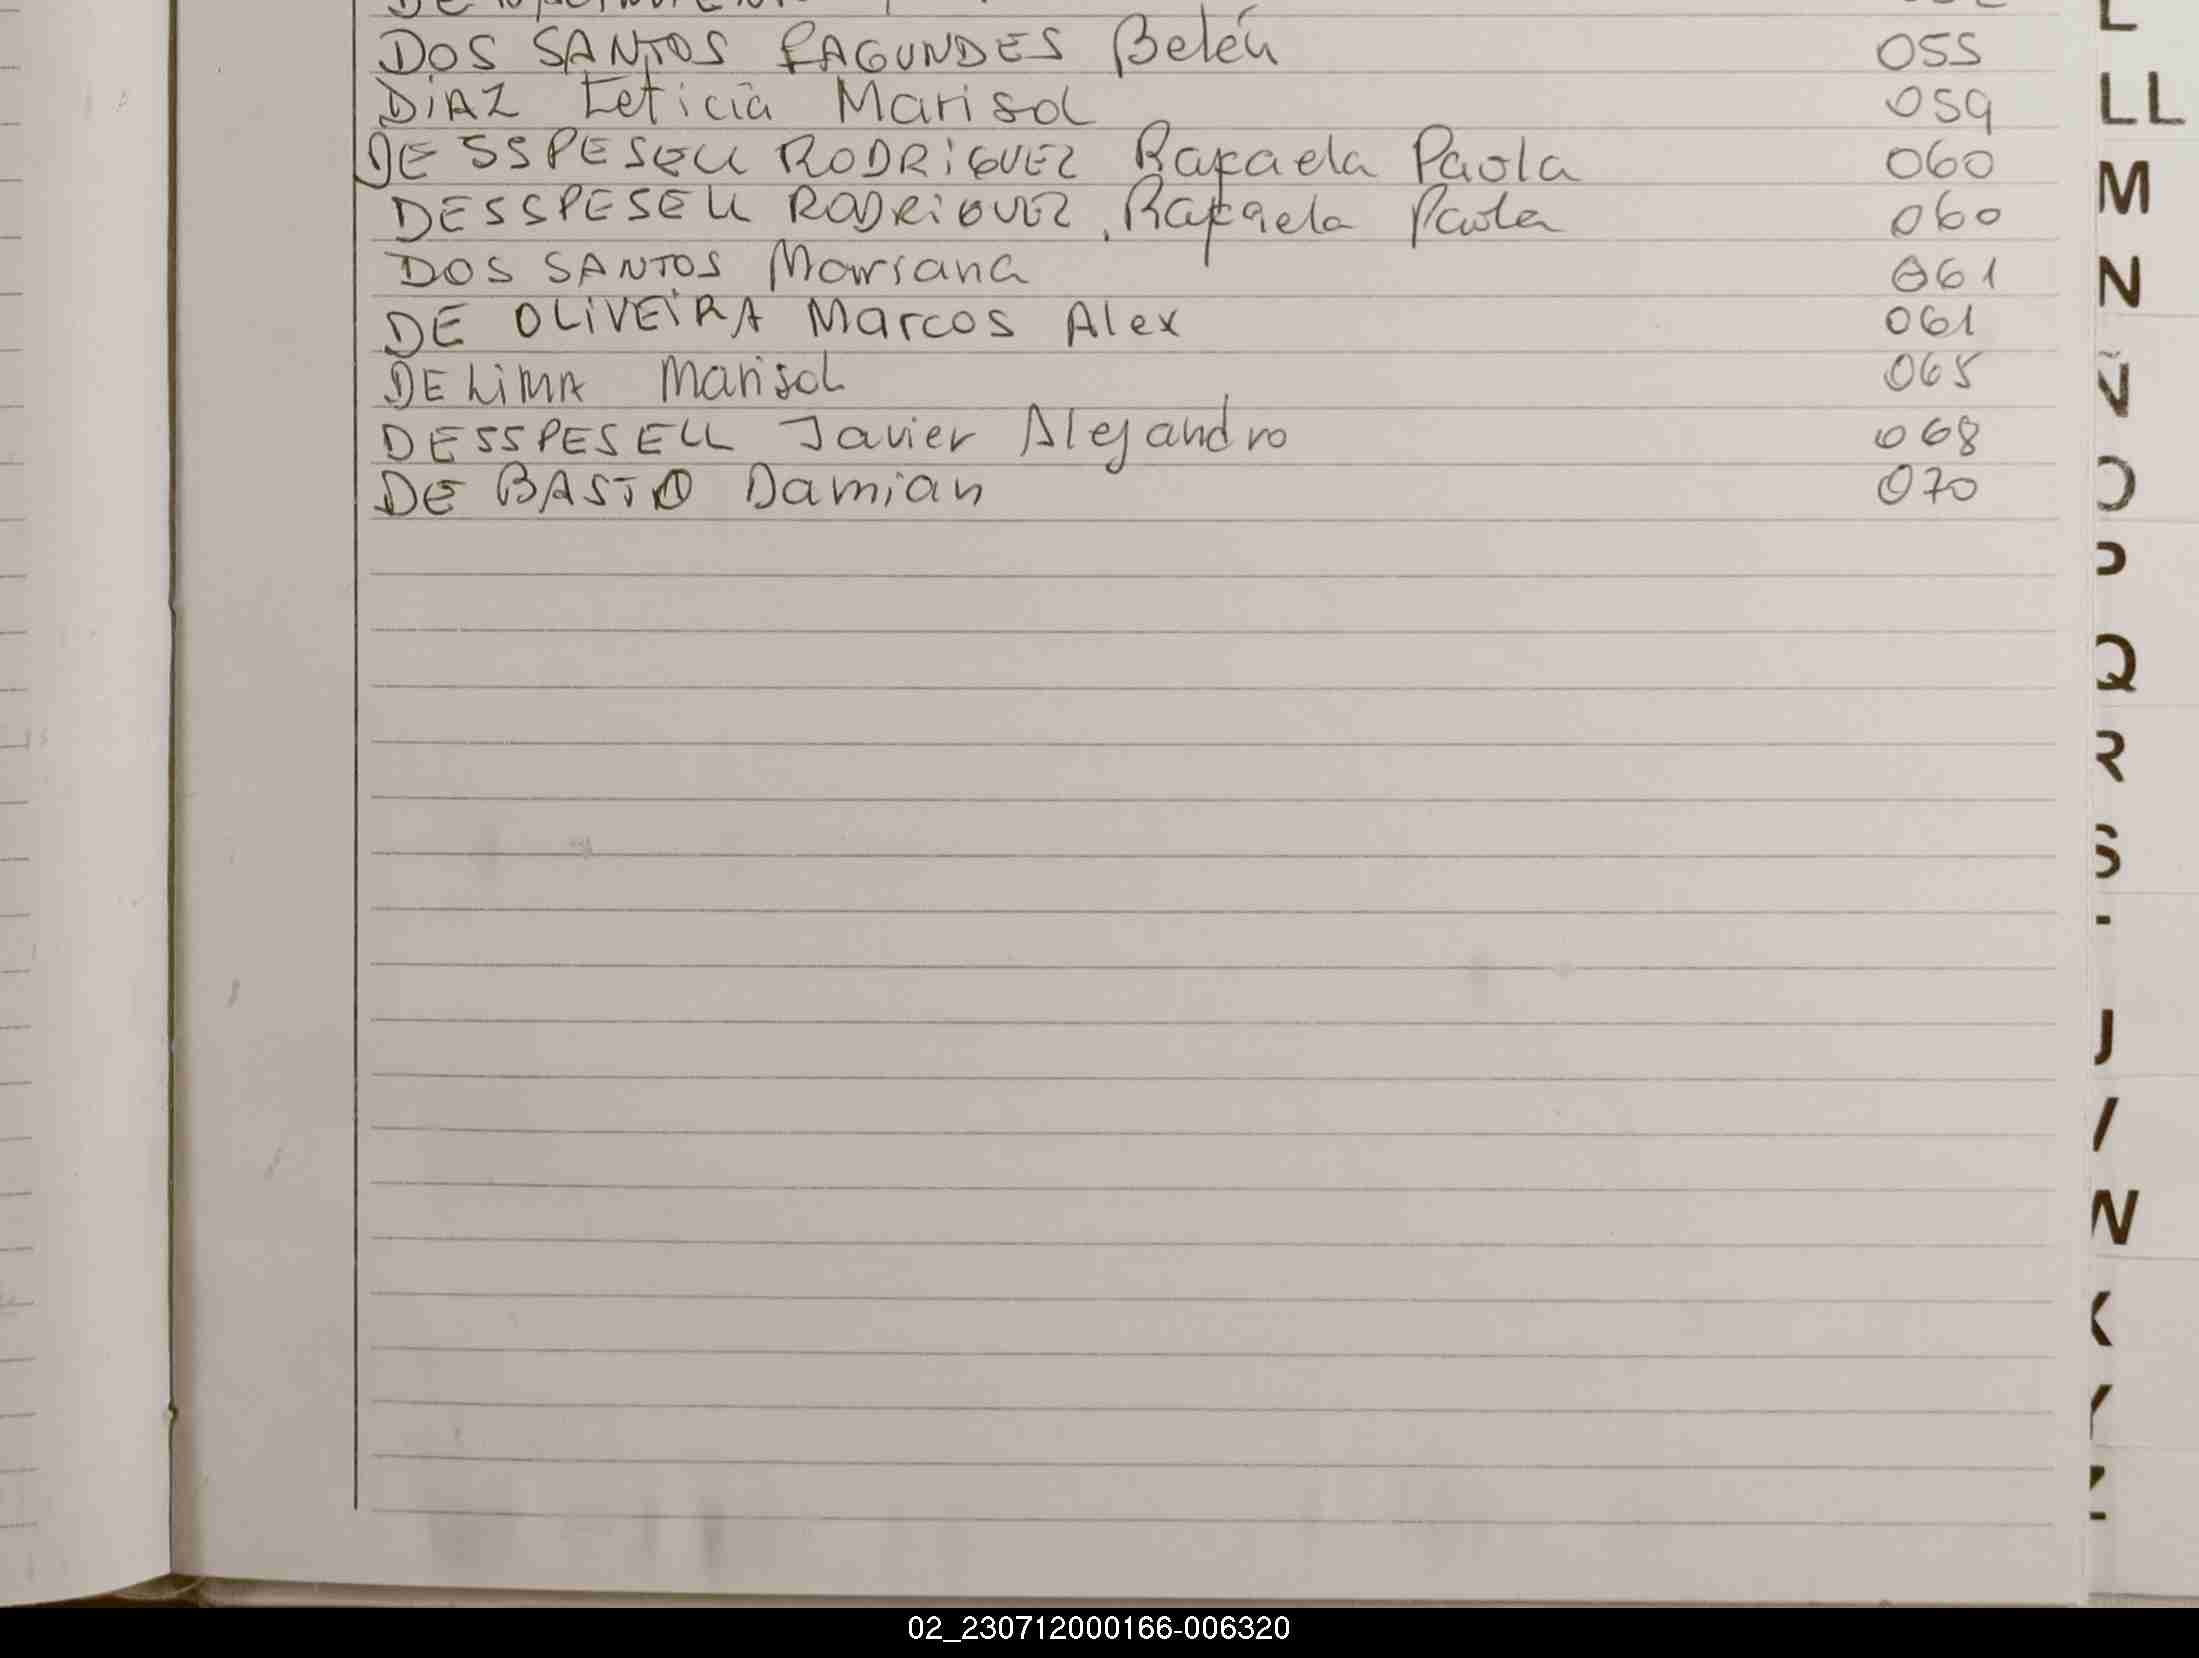 DOS SANTOS FAGUNDES Belén 055
DiAZ Leticia Marisol 059
DESSPESELL RODRiGUEZ Rafaela Paola 060
DESSPESELL RODRiGUEZ, Rafaela Paola 060
DOS SANTOS Mariana 061
DE OLiVEiRA Marcos Alex 061
DE LiMA Marisol 065
DESSPESELL Javier Alejandro 068
DE BASTO Damian 070
L
LL
M
N
Ñ
O
P
Q
R
S
X
Y
Z
02_230712000166-006320